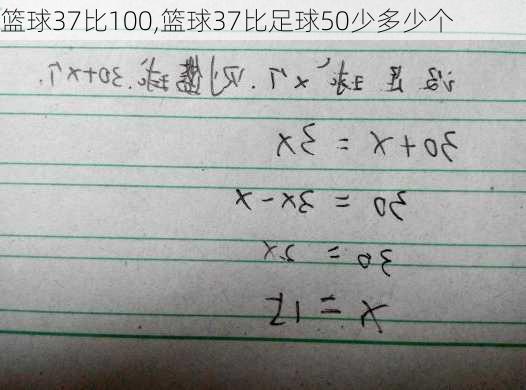 篮球37比100,篮球37比足球50少多少个
设足球x个.则篮球.30+x个.
30+x=3x
30=3x-x
30=2x
x=15